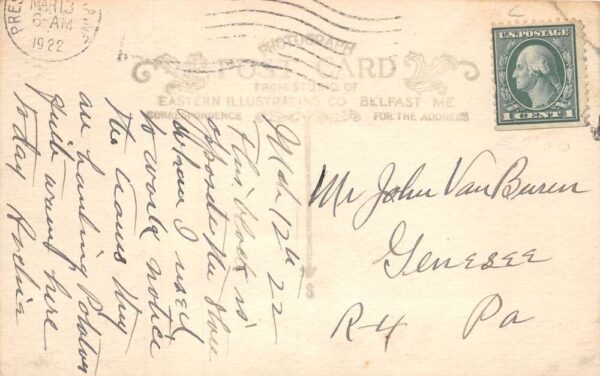 PRES
MAR 13
6 AM
1922
PHOTOGRAPH
POST CARD
FROM STUDIO OF
EASTERN ILLUSTRATING CO - BELFAST ME.
CORRESPONDENCE
FOR THE ADDRESS
U.S. POSTAGE
1 CENT 1
Mch 12th 22
This block is
opposite the store
where I used
to work notice
the canoes they
are hauling Potatoes
quite warm here
today
Mr John VanBuren
Genesee
R-4 Pa